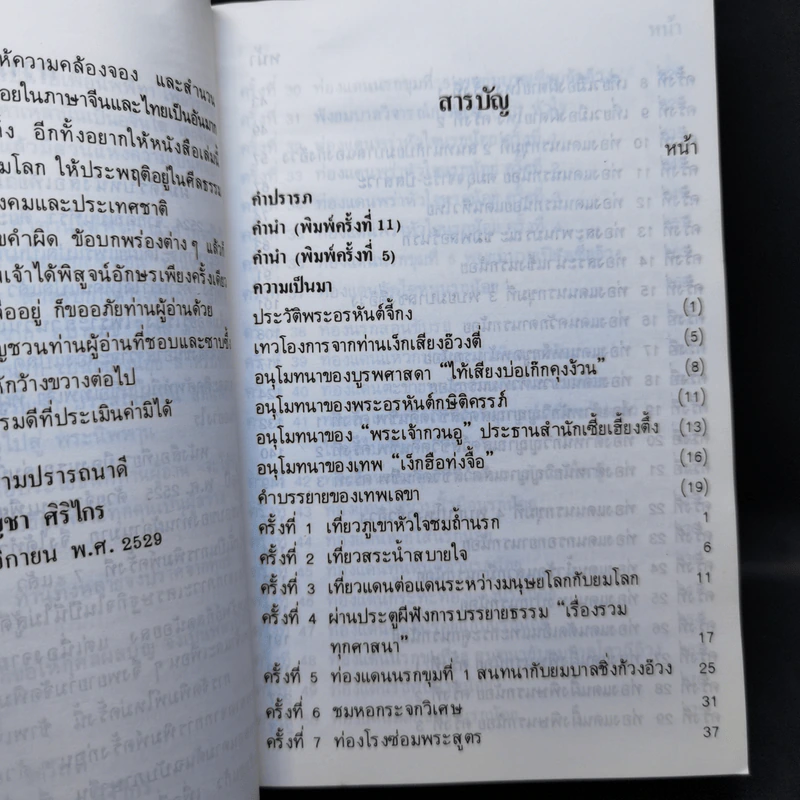 ห้ความคล้องจอง และสำนวน
อยในภาษาจีนและไทยเป็นอันมาก
อีกทั้งอยากให้หนังสือเล่มนี้
มโลก ให้ประพฤติอยู่ในศีลธรรม
งคมและประเทศชาติ
ขคำผิด ข้อบกพร่องต่างๆ แล้วก็
มเจ้าได้พิสูจน์อักษรเพียงครั้งเดียว
อยู่ ก็ขออภัยท่านผู้อ่านด้วย
ญชวนท่านผู้อ่านที่ชอบและซาบซึ้ง
กว้างขวางต่อไป
รมดีที่ประเมินค่ามิได้
ามปรารถนาดี
ญชา ศิริไกร
กายน พ.ศ. 2529
สารบัญ
หน้า
คำปรารภ
คำนำ (พิมพ์ครั้งที่ 11)
คำนำ (พิมพ์ครั้งที่ 5)
ความเป็นมา
ประวัติพระอรหันต์จี้กง (1)
เทวโองการจากท่านเง็กเสียงอ๊วงตี่ (5)
อนุโมทนาของบูรพศาสดา “ไท้เสียงบ่อเก๊กคุงง้วน” (8)
อนุโมทนาของพระอรหันต์กษิติครรภ์ (11)
อนุโมทนาของ “พระเจ้ากวนอู” ประธานสำนักเซี้ยเฮี้ยงตึ้ง (13)
อนุโมทนาของเทพ “เง็กฮือท่งจื้อ” (16)
คำบรรยายของเทพเลขา (19)
ครั้งที่ 1 เที่ยวภูเขาหัวใจชมถ้ำนรก 1
ครั้งที่ 2 เที่ยวสระน้ำสบายใจ 6
ครั้งที่ 3 เที่ยวแดนต่อแดนระหว่างมนุษยโลกกับยมโลก 11
ครั้งที่ 4 ผ่านประตูผีฟังการบรรยายธรรม “เรื่องรวม
ทุกศาสนา” 17
ครั้งที่ 5 ท่องแดนนรกขุมที่ 1 สนทนากับยมบาลซิ่งก้วงอ๊วง 25
ครั้งที่ 6 ชมหอกระจกวิเศษ 31
ครั้งที่ 7 ท่องโรงซ่อมพระสูตร 37